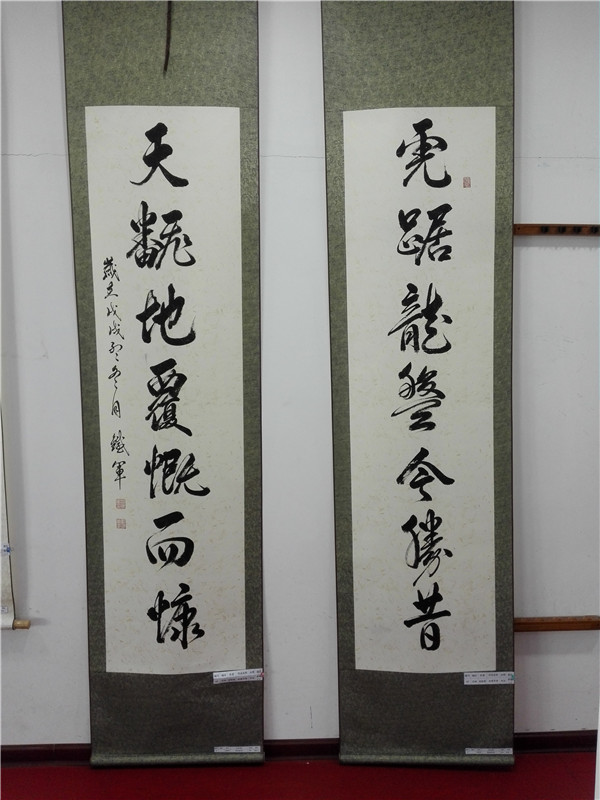 虎踞龍盤今勝昔
天翻地覆慨而慷
歲在戊戌年冬月 鐵軍